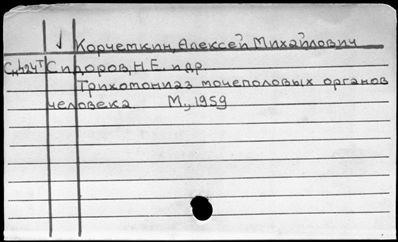 Корчемкин, Алексей Михайлович
Сидоров, Н.Е. и др.
Трихомониаз мочеполовых органов
человека М., 1959